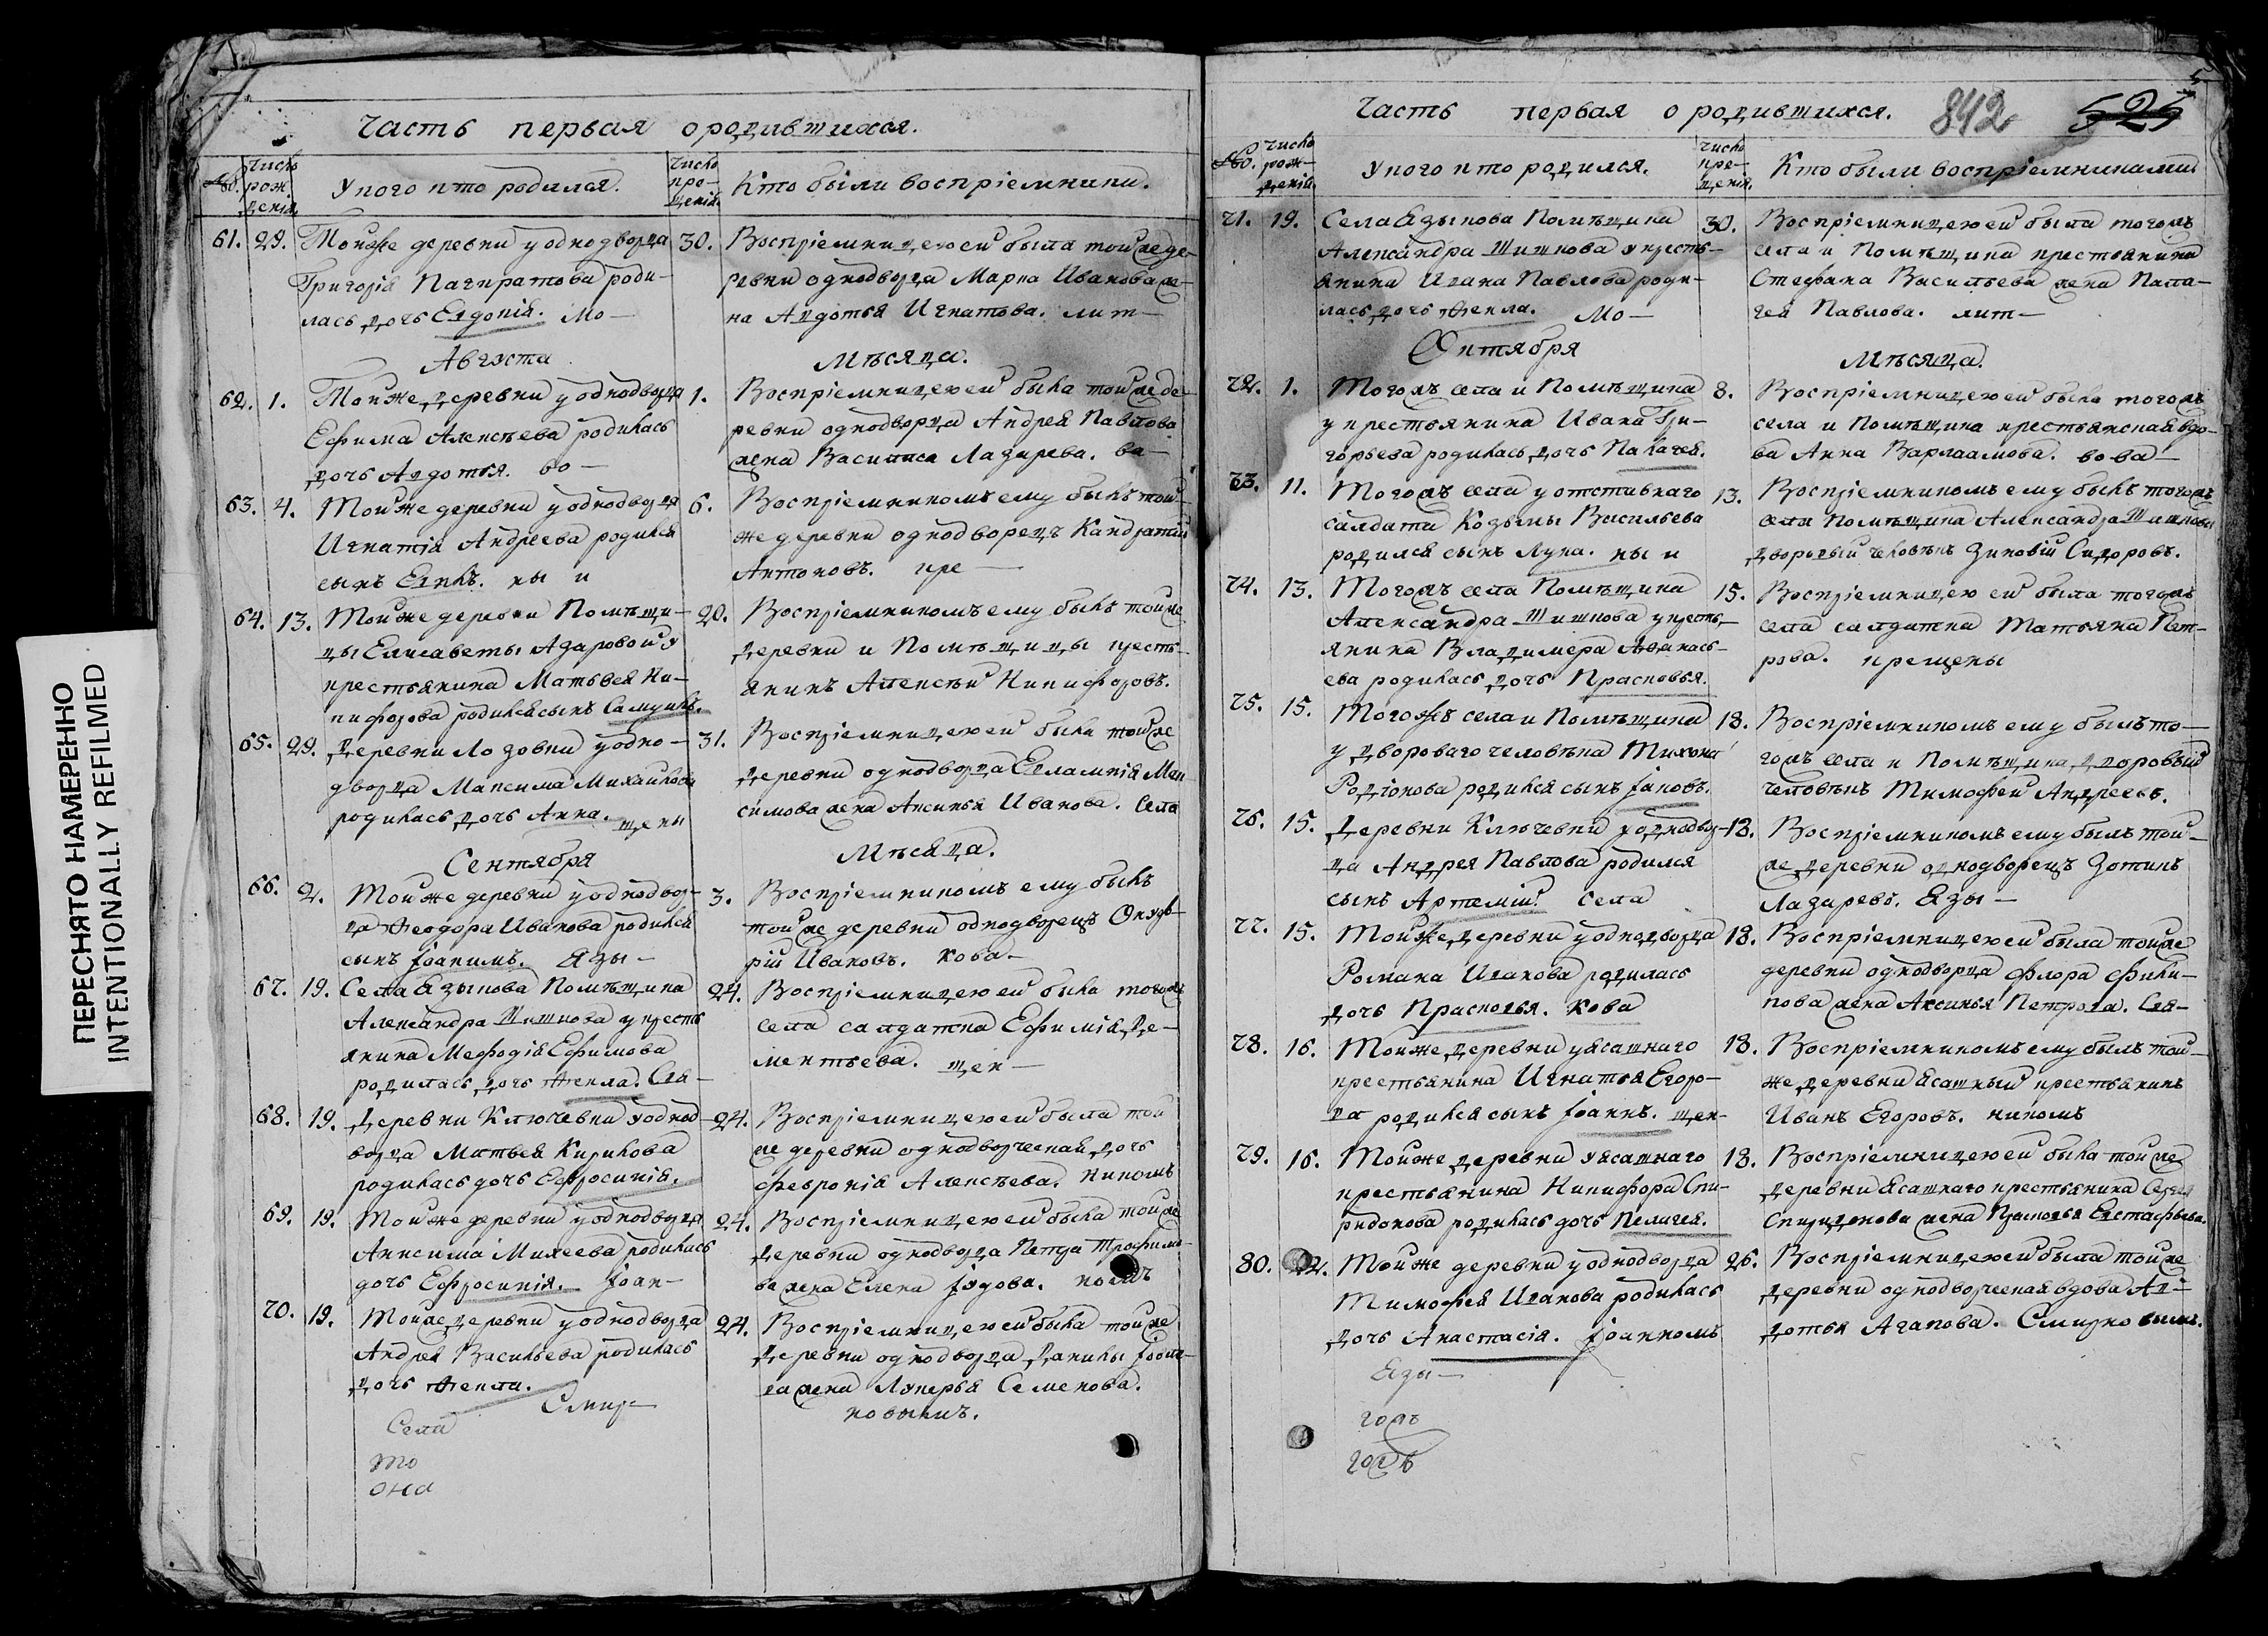 ПЕРЕСНЯТО НАМЕРЕННО
INTENTIONALLY REFILMED
Часть первая о родившихся.
№. Число рождения. У кого кто родился. Число крещения. Кто были воспріемники.
61. 29. Тойже деревни у однодворца
Григорія Панкратова роди-
лась дочь Евдокія. Мо-
30. Воспріемницею ей была тойже де-
ревни однодворца Марка Иванова же-
на Авдотья Игнатова. лит-
Августа Мѣсяца.
62. 1. Тойже деревни у однодворца
Ефима Алексѣева родилась
дочь Авдотья. во-
1. Воспріемницею ей была тойже де-
ревни однодворца Андрея Павлова
жена Василиса Лазарева. ва-
63. 4. Тойже деревни у однодворца
Игнатія Андреева родился
сынъ Евплъ. ны и
6. Воспріемникомъ ему былъ той-
же деревни однодворецъ Кандратій
Антоновъ. кре-
64. 13. Тойже деревни Помѣщи-
цы Елисаветы Азаровой у
крестьянина Матвея Ни-
кифорова родился сынъ Самуилъ.
20. Воспріемникомъ ему былъ тойже
деревни и Помѣщицы кресть-
янинъ Алексѣй Никифоровъ.
65. 29. Деревни Лозовки у одно-
дворца Максима Михаилова
родилась дочь Анна. щены
31. Воспріемницею ей была тойже
деревни однодворца Евлампія Мак-
симова жена Аксинья Иванова. Села
Сентября Мѣсяца.
66. 2. Тойже деревни у однодвор-
ца Ѳеодора Иванова родился
сынъ Іоакимъ. Язы-
3. Воспріемникомъ ему былъ
тойже деревни однодворецъ
Ивановъ. кова-
67. 19. Села Языкова Помѣщика
Александра Шишкова у кресть
янина Меѳодія Ефимова
родилась дочь Ѳекла. Свя-
24. Воспріемницею ей была тогожъ
села салдатка Ефимія Де-
ментьева. щен-
68. 19. Деревни Ключевки у однод-
ворца Матвея Кирилова
родилась дочь Ефросинія.
24. Воспріемницею ей была той
же деревни однодворческая дочь
Февронія Алексѣева. никомъ
69. 19. Тойже деревни у однодворца
Анисима Михеева родилась
дочь Ефросинія. Іоан-
24. Воспріемницею ей была тойже
деревни однодворца Петра Трофимо-
ва жена Елена Іудова. номъ
70. 19. Тойже деревни у однодворца
Андрея Васильева родилась
дочь Ѳекла. Смир-
24. Воспріемницею ей была тойже
деревни однодворца Данилы Іовле-
ва жена Лукерья Семенова.
новымъ.
Села
то
она
Часть первая о родившихся. 842 525
№. Число рожденія. У кого кто родился. Число крещенія. Кто были воспріемниками
71. 19. Села Языкова Помѣщика
Александра Шишкова у кресть-
янина Ивана Павлова роди-
лась дочь Ѳекла. Мо-
30. Воспріемницею ей была тогожъ
села и Помѣщика крестьянина
Стефана Васильева жена Пала-
гея Павлова. лит-
Октября Мѣсяца.
72. 1. Тогожъ села и Помѣщика
у крестьянина Ивана Гри-
горьева родилась дочь Палагея.
8. Воспріемницею ей была тогожъ
села и Помѣщика крестьянская вдо-
ва Анна Варлаамова. вова-
73. 11. Тогожъ села у отставнаго
салдата Козьмы Васильева
родился сынъ Лука. ны и
13. Воспріемникомъ ему былъ тогожъ
села Помѣщика Александра Шишкова
дворовый человѣкъ Зиновій Сидоровъ.
74. 13. Тогожъ села Помѣщика
Александра Шишкова у кресть-
янина Владимера Аѳанась-
ева родилась дочь Прасковья.
15. Воспріемницею ей была тогожъ
села салдатка Татьяна Пет-
рова. крещены
75. 15. Тогожъ села и Помѣщика
у двороваго человѣка Тихона
Родіонова родился сынъ Іаковъ.
18. Воспріемникомъ ему былъ то-
гожъ села и Помѣщика дворовый
человѣкъ Тимофей Андреевъ.
76. 15. Деревни Ключевки у однодвор-
ца Андрея Павлова родился
сынъ Артемій. Села
18. Воспріемникомъ ему былъ той-
же деревни однодворецъ Зотикъ
Лазаревъ. Язы-
77. 15. Тойже деревни у однодворца
Романа Иванова родилась
дочь Прасковья. кова
18. Воспріемницею ей была тойже
деревни однодворца Флора Фили-
пова жена Аксинья Петрова. Свя-
78. 16. Тойже деревни у ясашнаго
крестьянина Игнатья Егоро-
ва родился сынъ Іоаннъ. щен-
18. Воспріемникомъ ему былъ той-
же деревни ясашный крестьянинъ
Иванъ Егоровъ. никомъ
79. 16. Тойже деревни у ясашнаго
крестьянина Никифора Спи-
ридонова родилась дочь Пелагея.
18. Воспріемницею ей была тойже
деревни ясашнаго крестьянина Сергея
Спиридонова жена Прасковья Евстафьева.
80. 22. Тойже деревни у однодворца
Тимофея Иванова родилась
дочь Анастасія. Іоанномъ
26. Воспріемницею ей была тойже
деревни однодворческая вдова Ав-
дотья Агапова. Смирновымъ.
Язы-
гожъ
гожъ